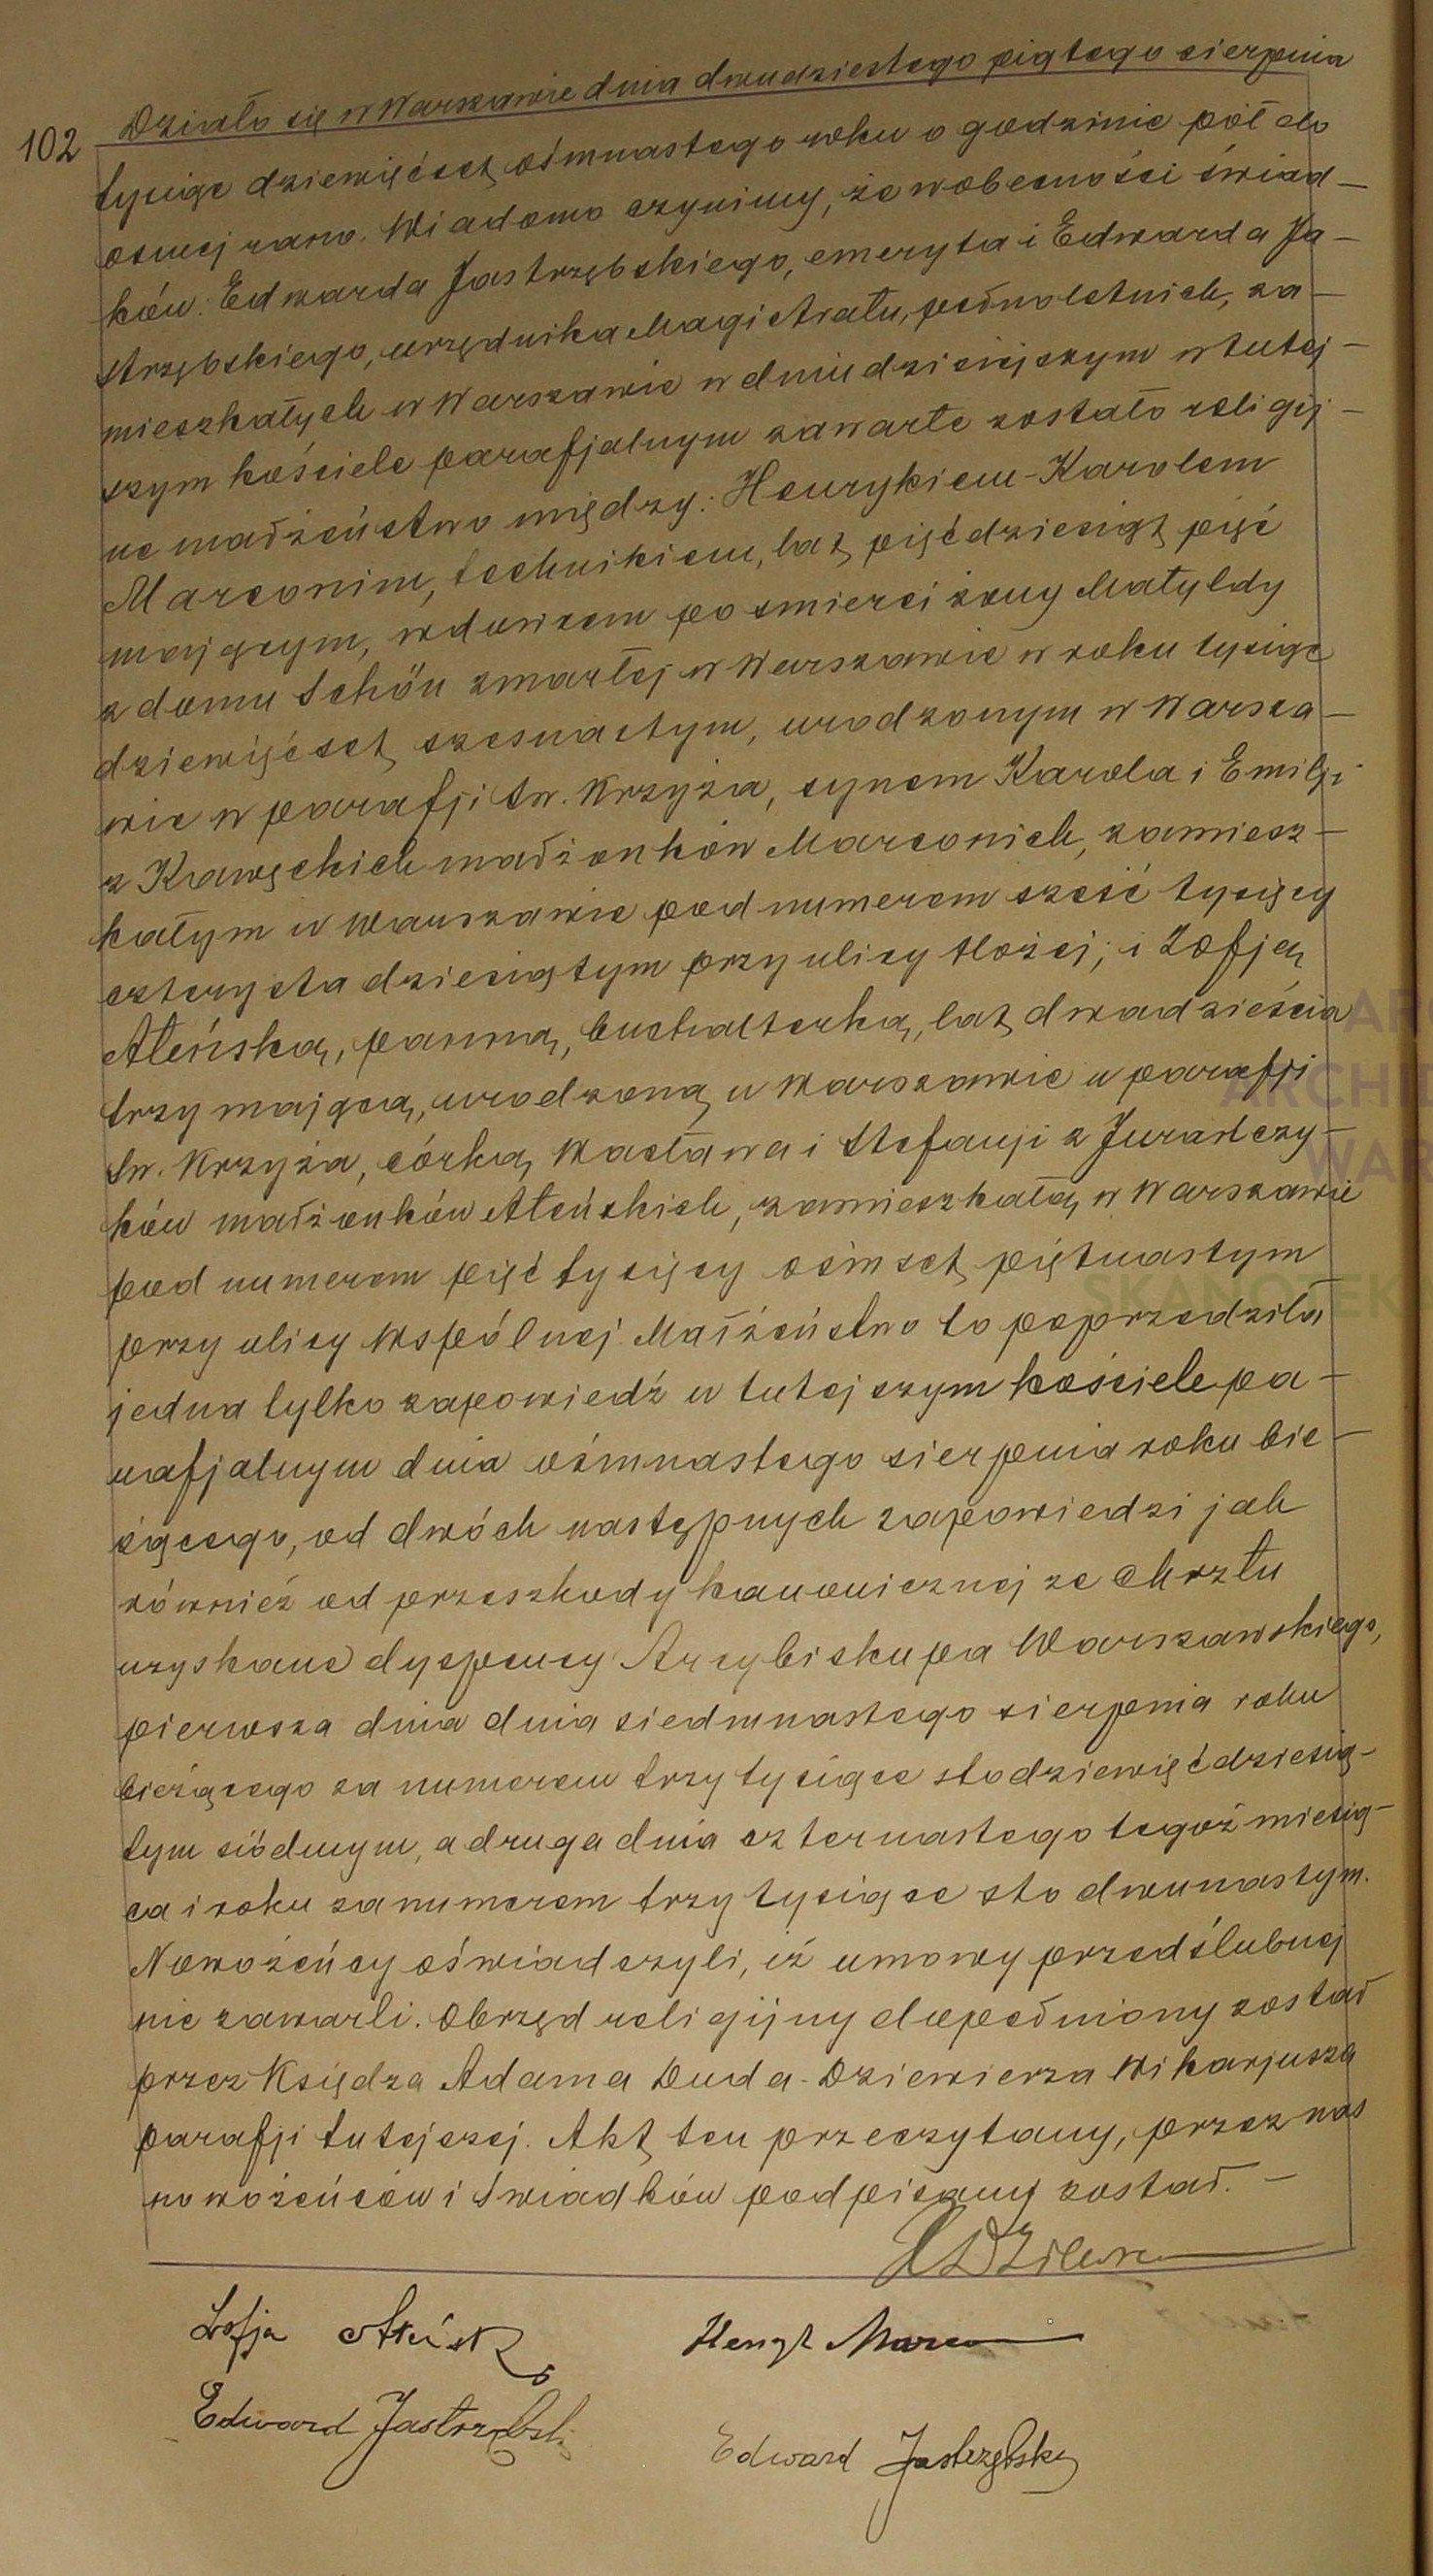 Działo się w Warszawie dnia dwudziestego piątego sierpnia
102
tysiąc dziewięćset ośmnastego roku o godzinie pół do
ósmej rano. Wiadomo czynimy, że w obecności świad-
ków: Edwarda Jastrzębskiego, emeryta i Edwarda Ja-
strzębskiego, urzędnika Magistratu, pełnoletnich, za-
mieszkałych w Warszawie w dniu dzisiejszym w tutej-
szym kościele parafjalnym zawarte zostało religij-
ne małżeństwo między: Henrykiem-Karolem
Marconim, technikiem, lat pięćdziesiąt pięć
mającym, wdowcem po śmierci żony Matyldy
z domu Schön zmarłej w Warszawie w roku tysiąc
dziewięćset szesnastym, urodzonym w Warsza-
wie w parafji Św. Krzyża, synem Karola i Emilji
z Kawęckich małżonków Marconich, zamiesz-
kałym w Warszawie pod numerem sześć tysięcy
czterysta dziesiątym przy ulicy Hożej; i Zofją
Ateńską, panną, buchalterką, lat dwadzieścia
trzy mającą, urodzoną w Warszawie w parafji
Św. Krzyża, córką Wacława i Stefanji z Jurandczy-
ków małżonków Ateńskich, zamieszkałą w Warszawie
pod numerem pięć tysięcy ośmset piętnastym
przy ulicy Wspólnej. Małżeństwo to poprzedziła
jedna tylko zapowiedź w tutejszym kościele pa-
rafjalnym dnia ośmnastego sierpnia roku bie-
żącego, od dwóch następnych zapowiedzi jak
również od przeszkody kanonicznej ze chrztu
uzyskane dyspensy Arcybiskupa Warszawskiego,
pierwsza dnia dnia siedmnastego sierpnia roku
bieżącego za numerem trzy tysiące sto dziewięćdziesią-
tym siódmym, a druga dnia czternastego tegoż miesią-
ca i roku za numerem trzy tysiące sto dwunastym.
Nowożeńcy oświadczyli, iż umowy przedślubnej
nie zawarli. Obrzęd religijny dopełniony został
przez Księdza Adama Duda-Dziewierza Wikarjusza
parafji tutejszej. Akt ten przeczytany, przez nas
nowożeńców i Świadków podpisany został. -
Zofja Henryk Marconi
Edward Jastrzębski
Edward Jastrzębski
SKANOTEK